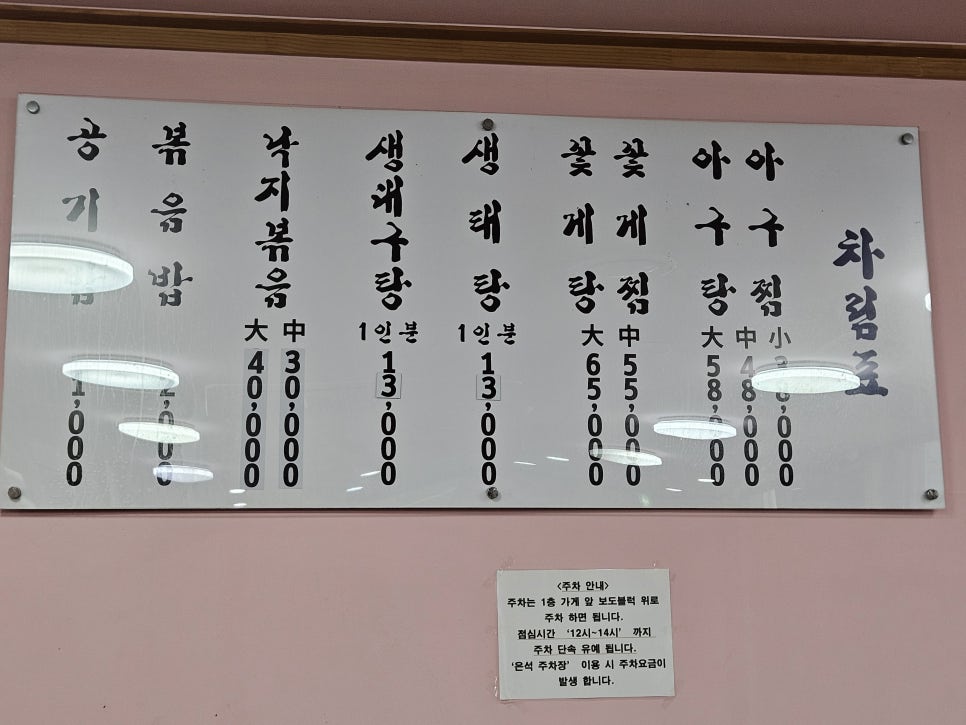 차림표
아구찜
아구탕
小 38,000
中 48,000
大 58,000
꽃게찜
꽃게탕
中 55,000
大 65,000
생태탕
1인분
13,000
생대구탕
1인분
13,000
낙지볶음
中 30,000
大 40,000
볶음밥
2,000
공기밥
1,000
<주차 안내>
주차는 1층 가게 앞 보도블럭 위로
주차 하면 됩니다.
점심시간 '12시~14시' 까지
주차 단속 유예 됩니다.
'은석 주차장' 이용 시 주차요금이
발생 합니다.